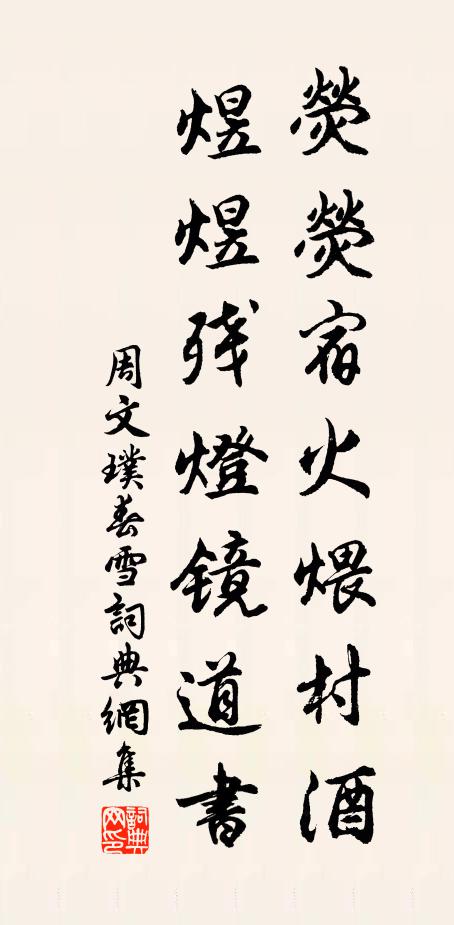 熒熒宿火煨村酒
煜煜残燈镜道書
周文璞春雪詞典網集
詞典网印